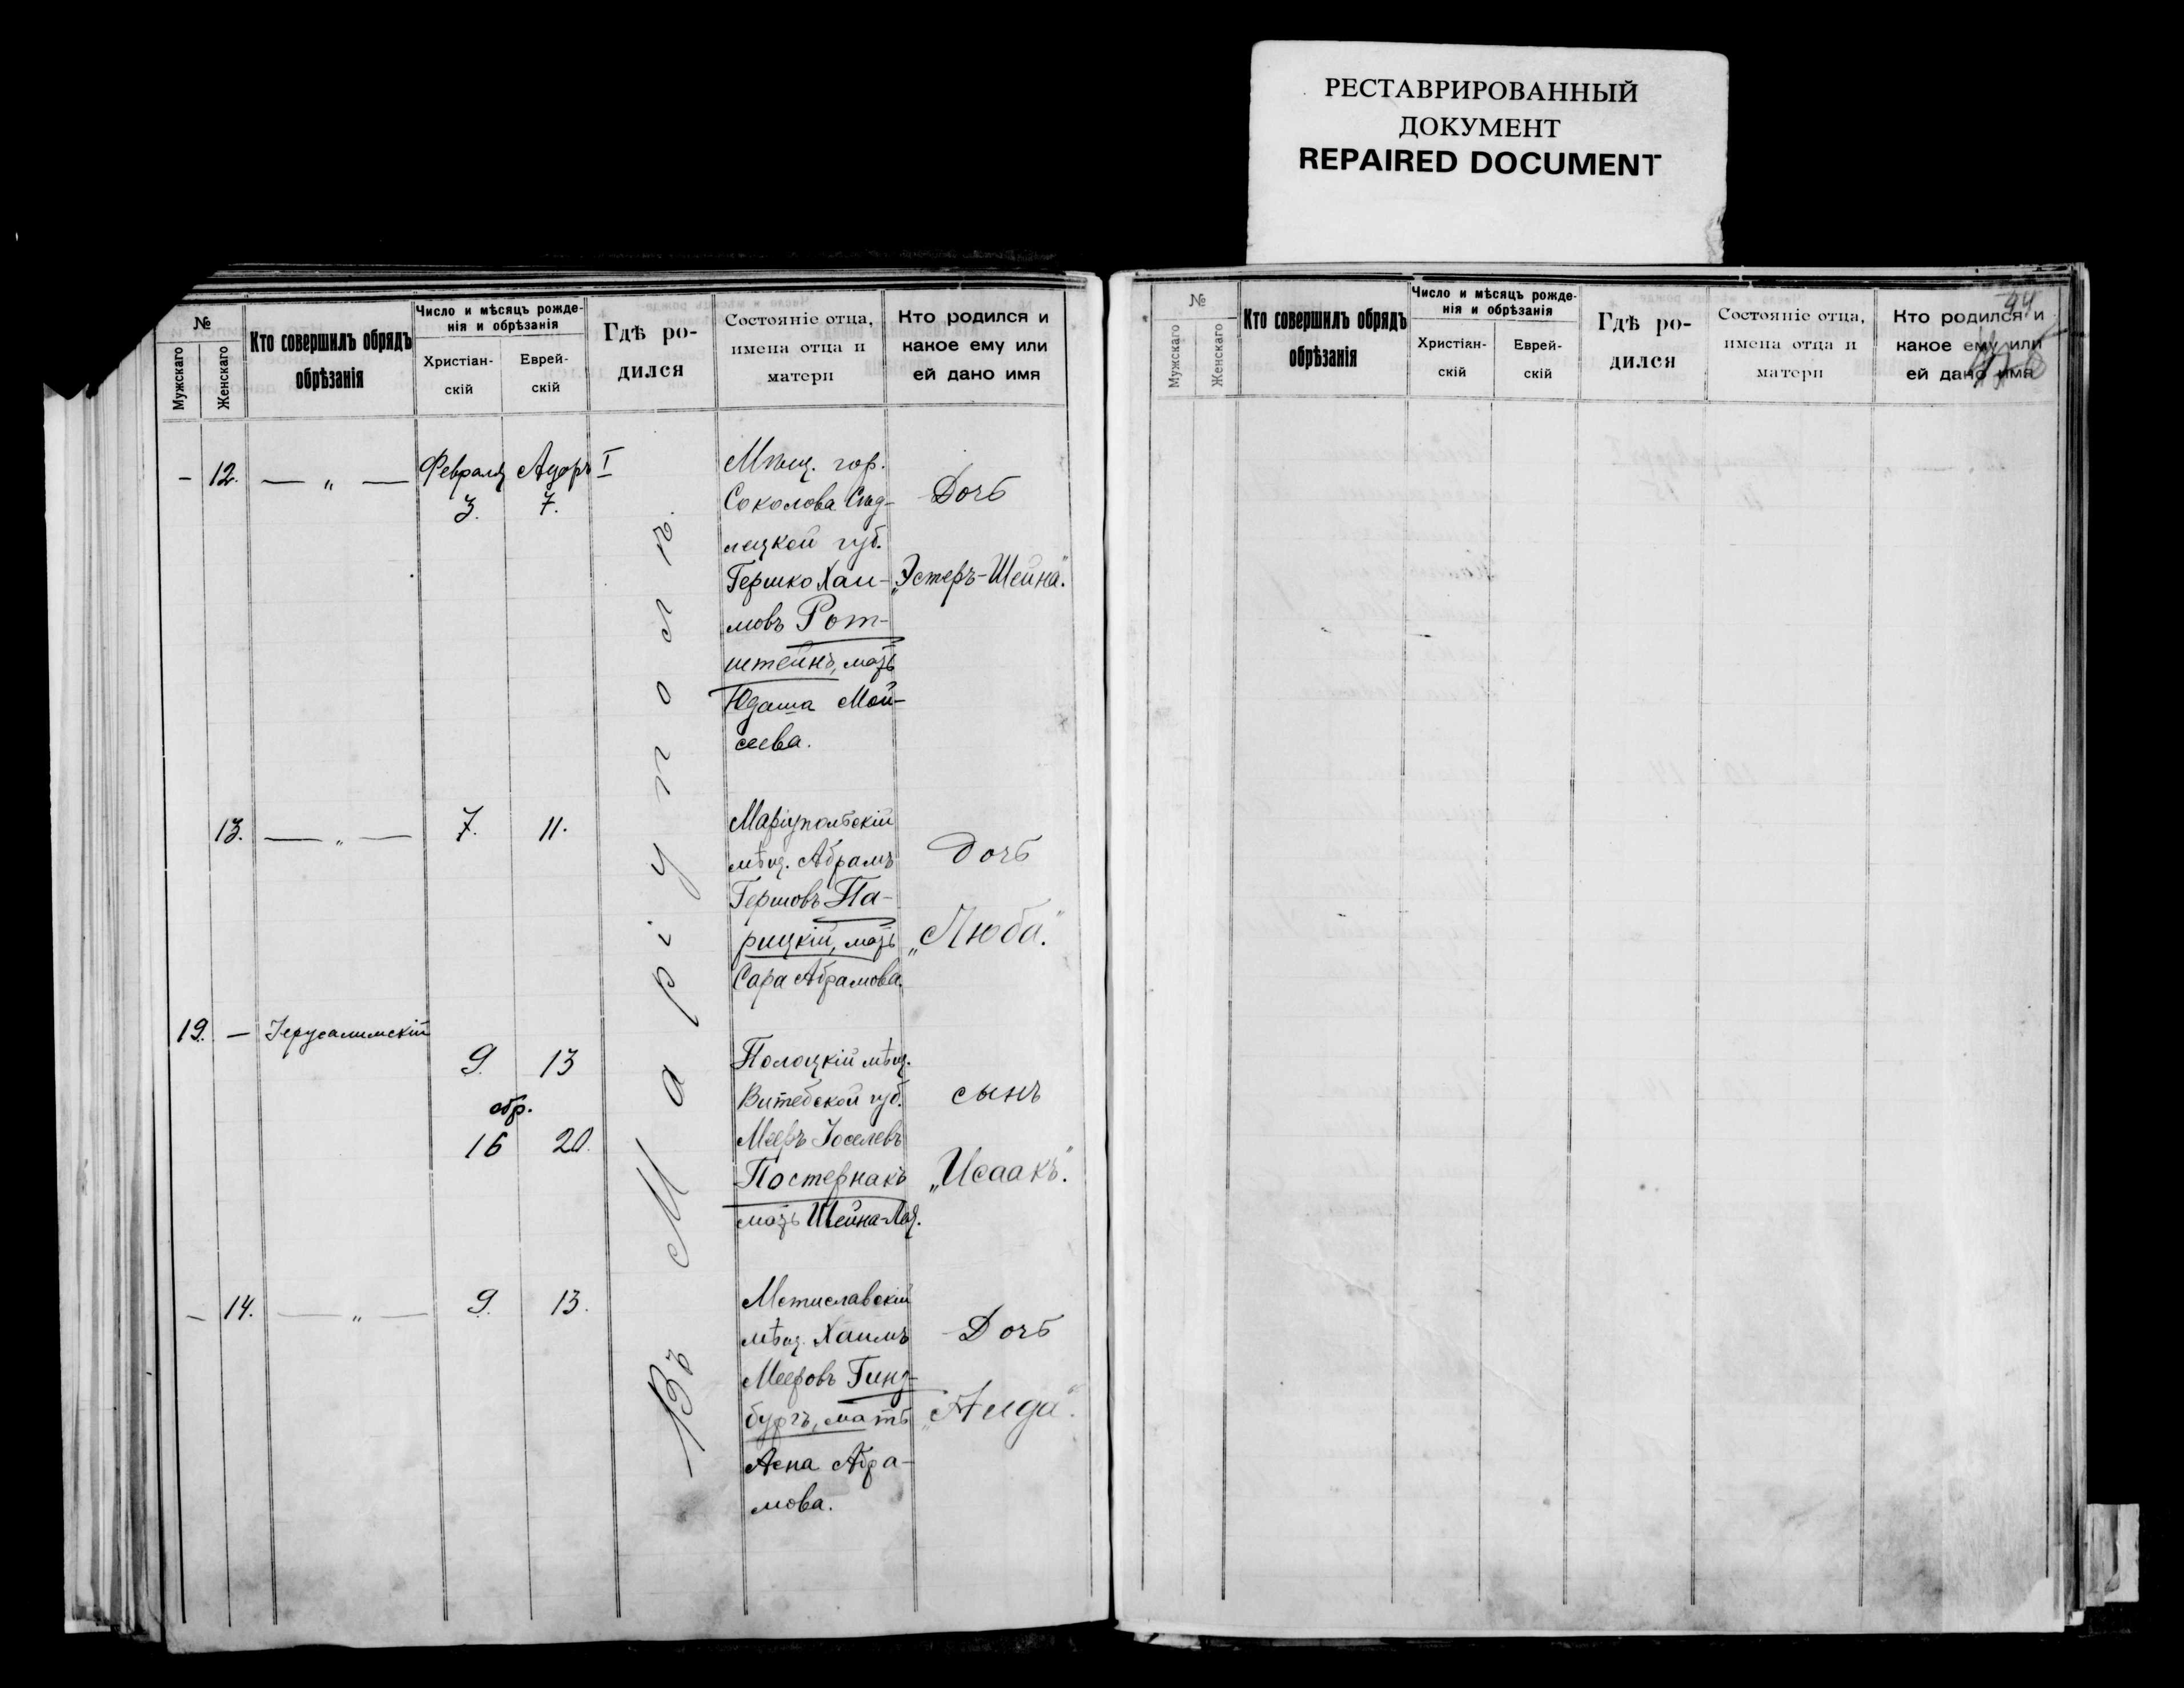 РЕСТАВРИРОВАННЫЙ
ДОКУМЕНТ
REPAIRED DOCUMENT
№
Мужскаго
Женскаго
Кто совершилъ обрядъ
обрѣзанія
Число и мѣсяцъ рожде-
нія и обрѣзанія
Христіан-
скій
Еврей-
скій
Гдѣ ро-
дился
Состояніе отца,
имена отца и
матери
Кто родился и
какое ему или
ей дано имя
Въ Маріуполѣ.
— 12. — „ —
Февраля Адаръ I
3. 7.
Мѣщ. гор.
Соколова Сѣд-
лецкой губ.
Гершко Хаи-
мовъ Рот-
штейнъ, мать
Юдаша Мой-
сеева.
Дочь
„Эстеръ-Шейна".
13. — „ — 7. 11.
Маріупольскій
мѣщ. Абрамъ
Гершовъ Па-
рицкій, мать
Сара Абрамова.
Дочь
„Люба".
19. — Іерусалимскій
9. 13
обр.
16 20.
Полоцкій мѣщ.
Витебской губ.
Мееръ Іоселевъ
Постернакъ
мать Шейна-Лея.
сынъ
„Исаакъ".
— 14. — „ — 9. 13.
Мстиславскій
мѣщ. Хаимъ
Мееровъ Гинз-
бургъ, мать
Асна Абра-
мова.
Дочь
„Аида".
№
Мужскаго
Женскаго
Кто совершилъ обрядъ
обрѣзанія
Число и мѣсяцъ рожде-
нія и обрѣзанія
Христіан-
скій
Еврей-
скій
Гдѣ ро-
дился
Состояніе отца,
имена отца и
матери
Кто родился и
какое ему или
ей дано имя